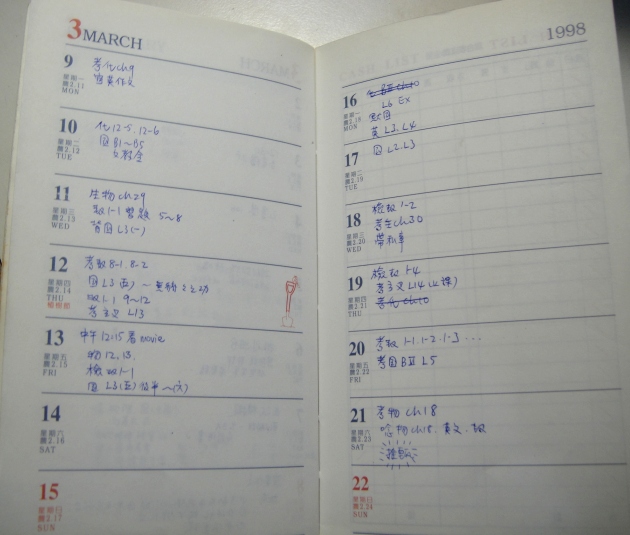 3 MARCH
9
星期一
農2.11
MON
考化ch9
寫英作文
10
星期二
農2.12
TUE
化12-5.12-6
國B1~B5
11
星期三
農2.13
WED
生物ch29
數1-1習題 5~8
背國L3(一)
12
星期四
農2.14
THU
植樹節
考數8-1 8-2
國L3(五)
數1-1 9~12
考主义L13
13
星期五
農2.15
FRI
中午12:15看movie
物12.13.
檢数1-1
國L3(五)
14
星期六
農2.16
SAT
15
星期日
農2.17
SUN
1998
16
星期一
農2.18
MON
L6 Ex
默国
英L3.L4
17
星期二
農2.19
TUE
国L2.L3
18
星期三
農2.20
WED
檢数1-2
考生ch30
19
星期四
農2.21
THU
檢数1-4
考主义L14(上課)
考化ch10
20
星期五
農2.22
FRI
考数1-1.1-2.1-3...
考国BⅡL5
21
星期六
農2.23
SAT
考物ch18
物ch18.英文.数
22
星期日
農2.24
SUN